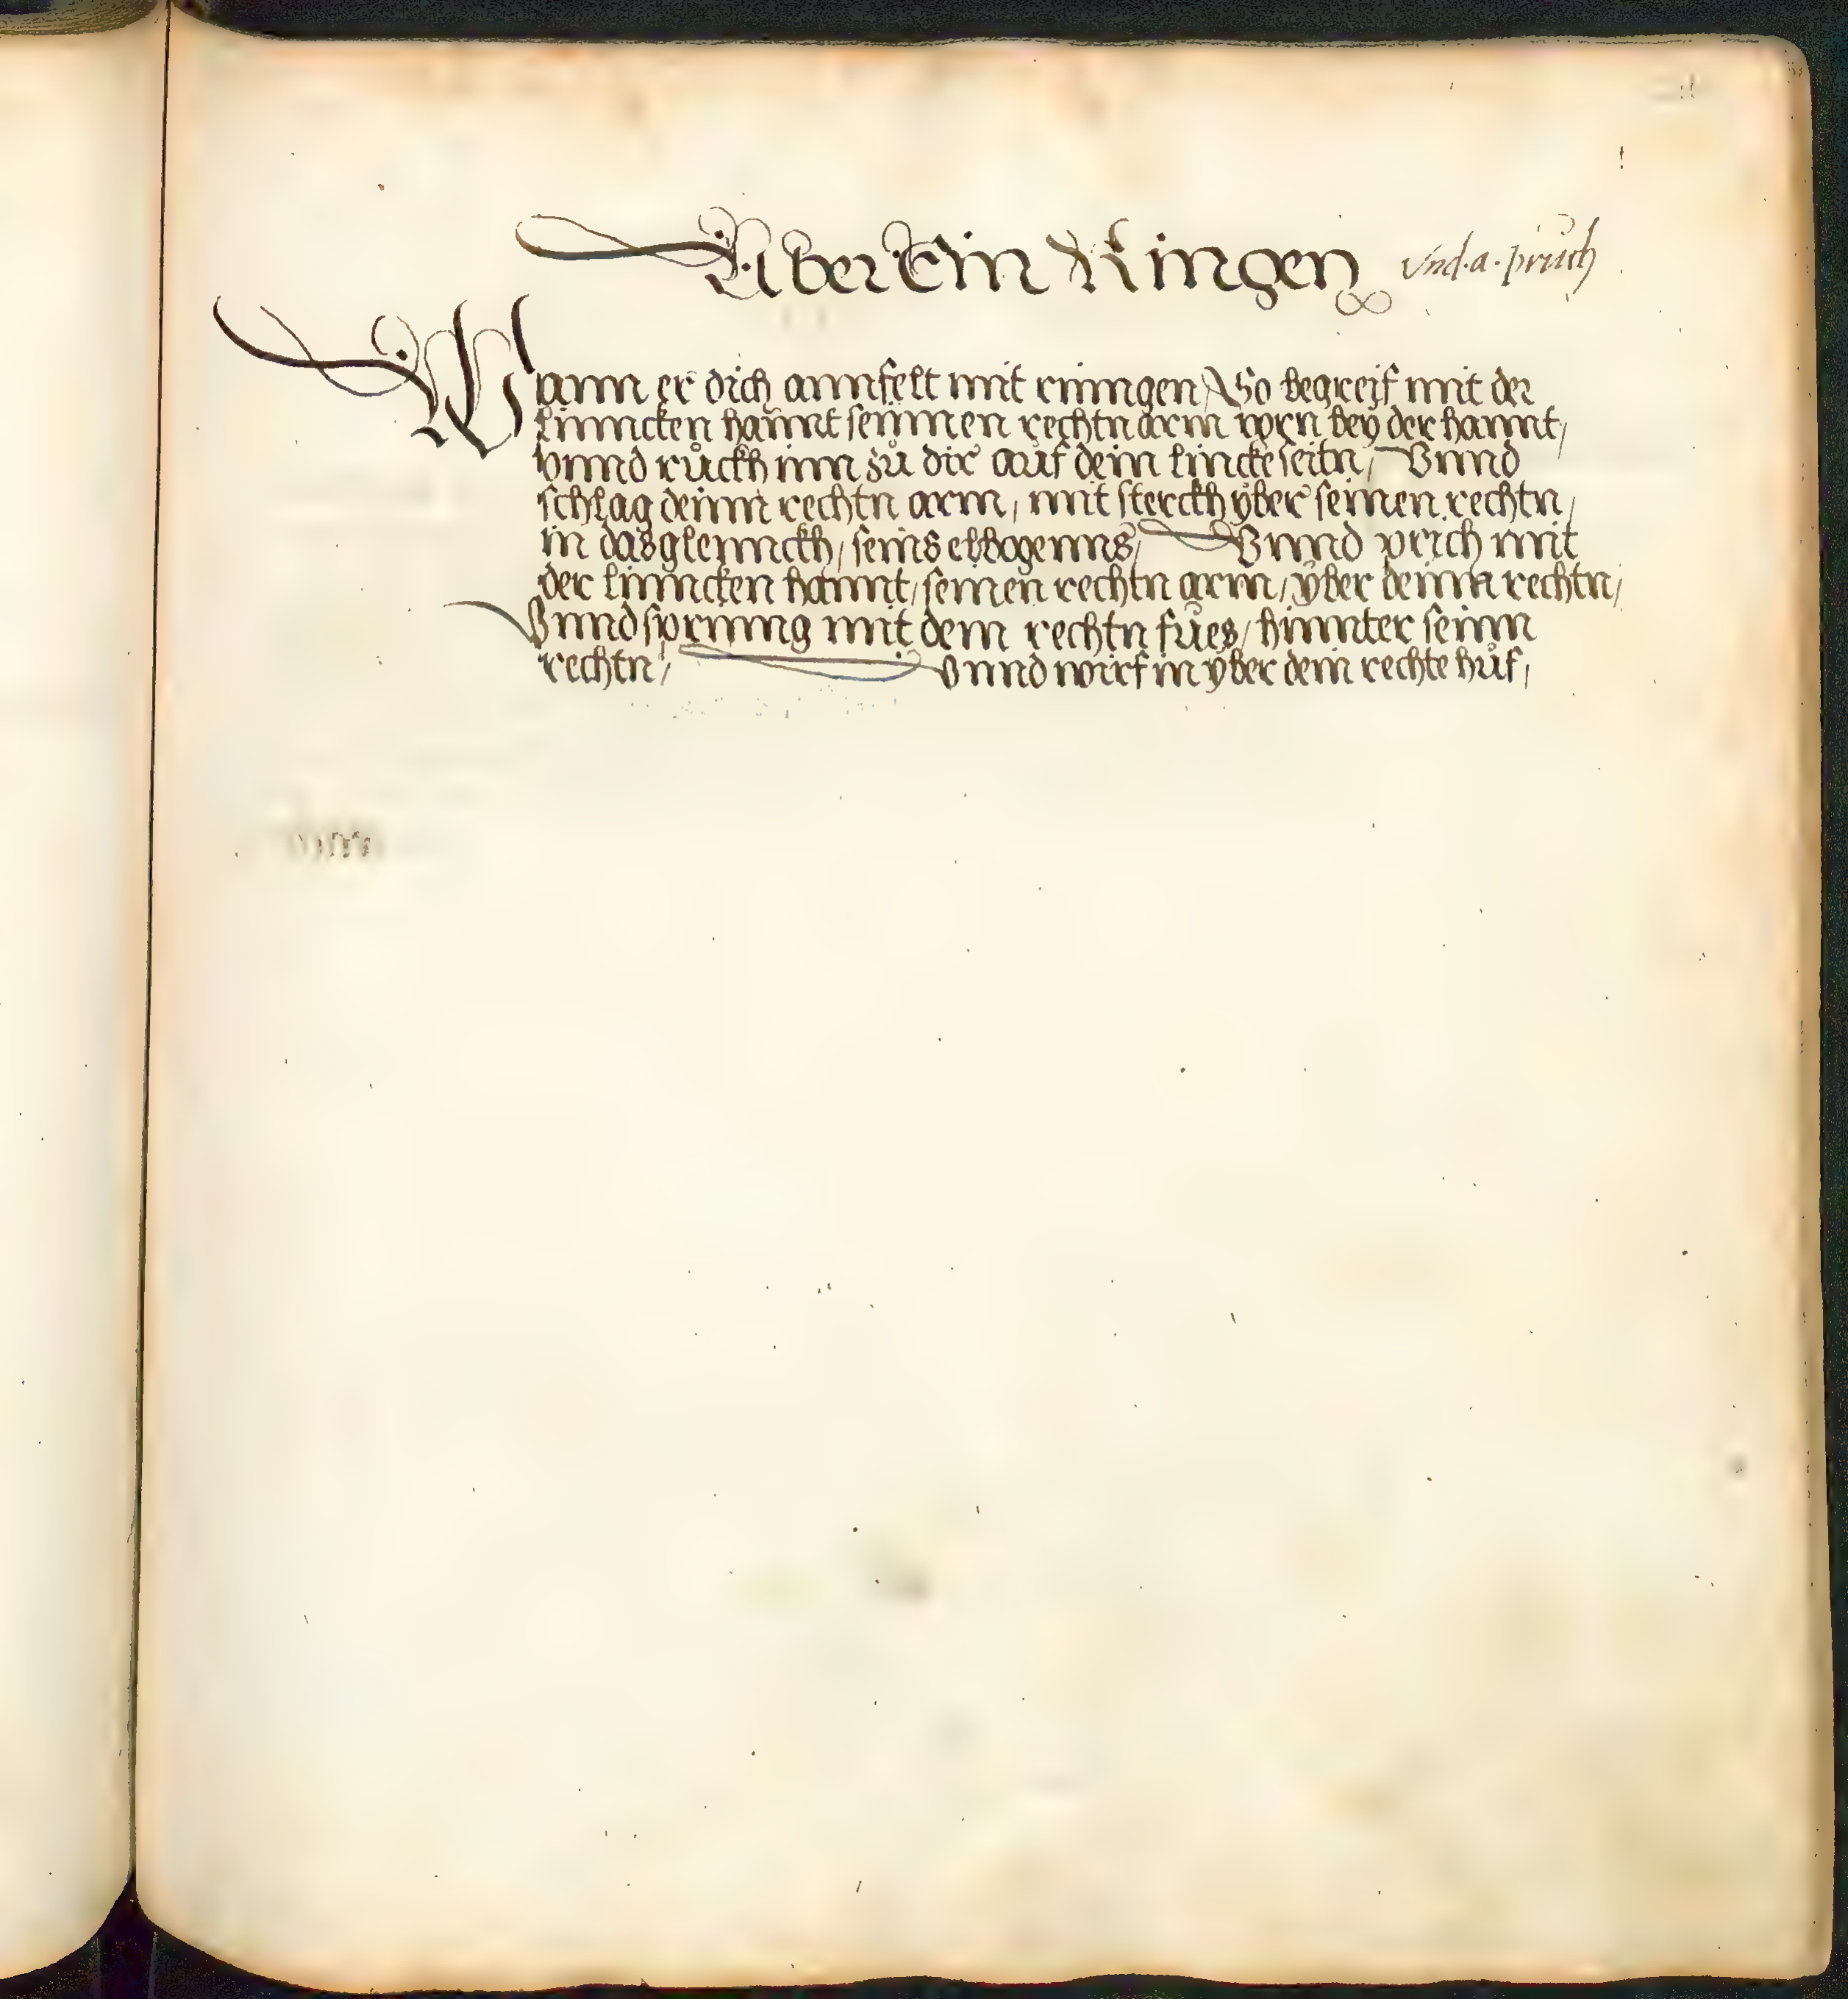 Aber Ein Ringen vnd · a · pruch
Wann er dich annfelt mit rinngen, So begreif mit der
linncken hannt seinnen rechtn arm vorn bey der hannt,
vnnd růckh inn zů dir auf dein lincke seitn, Vnnd
schlag deinn rechtn arm, mit sterckh yber seinen rechtn,
in das glennckh, seins elbogenns, Vnnd prich mit
der linncken hannt, seinen rechtn arm, yber deinn rechtn,
Vnnd sprinng mit dem rechtn fůes, hinnter seinn
rechtn, Vnnd wirf in yber dein rechte hůf,